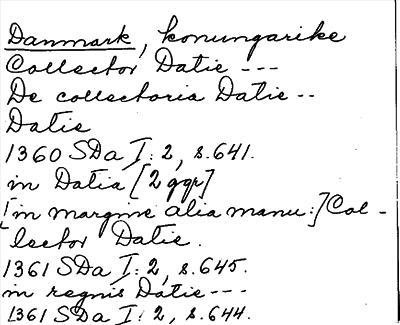 Danmark, konungarike
Collector Datie ---
De collectoria Datie --
Datie
1360 SDa I: 2, s. 641.
in Datia [2 ggr]
[in margine alia manu:] Col-
lector Datie.
1361 SDa I: 2, s. 645.
in regnis Datie ---
1361 SDa I: 2, s. 644.